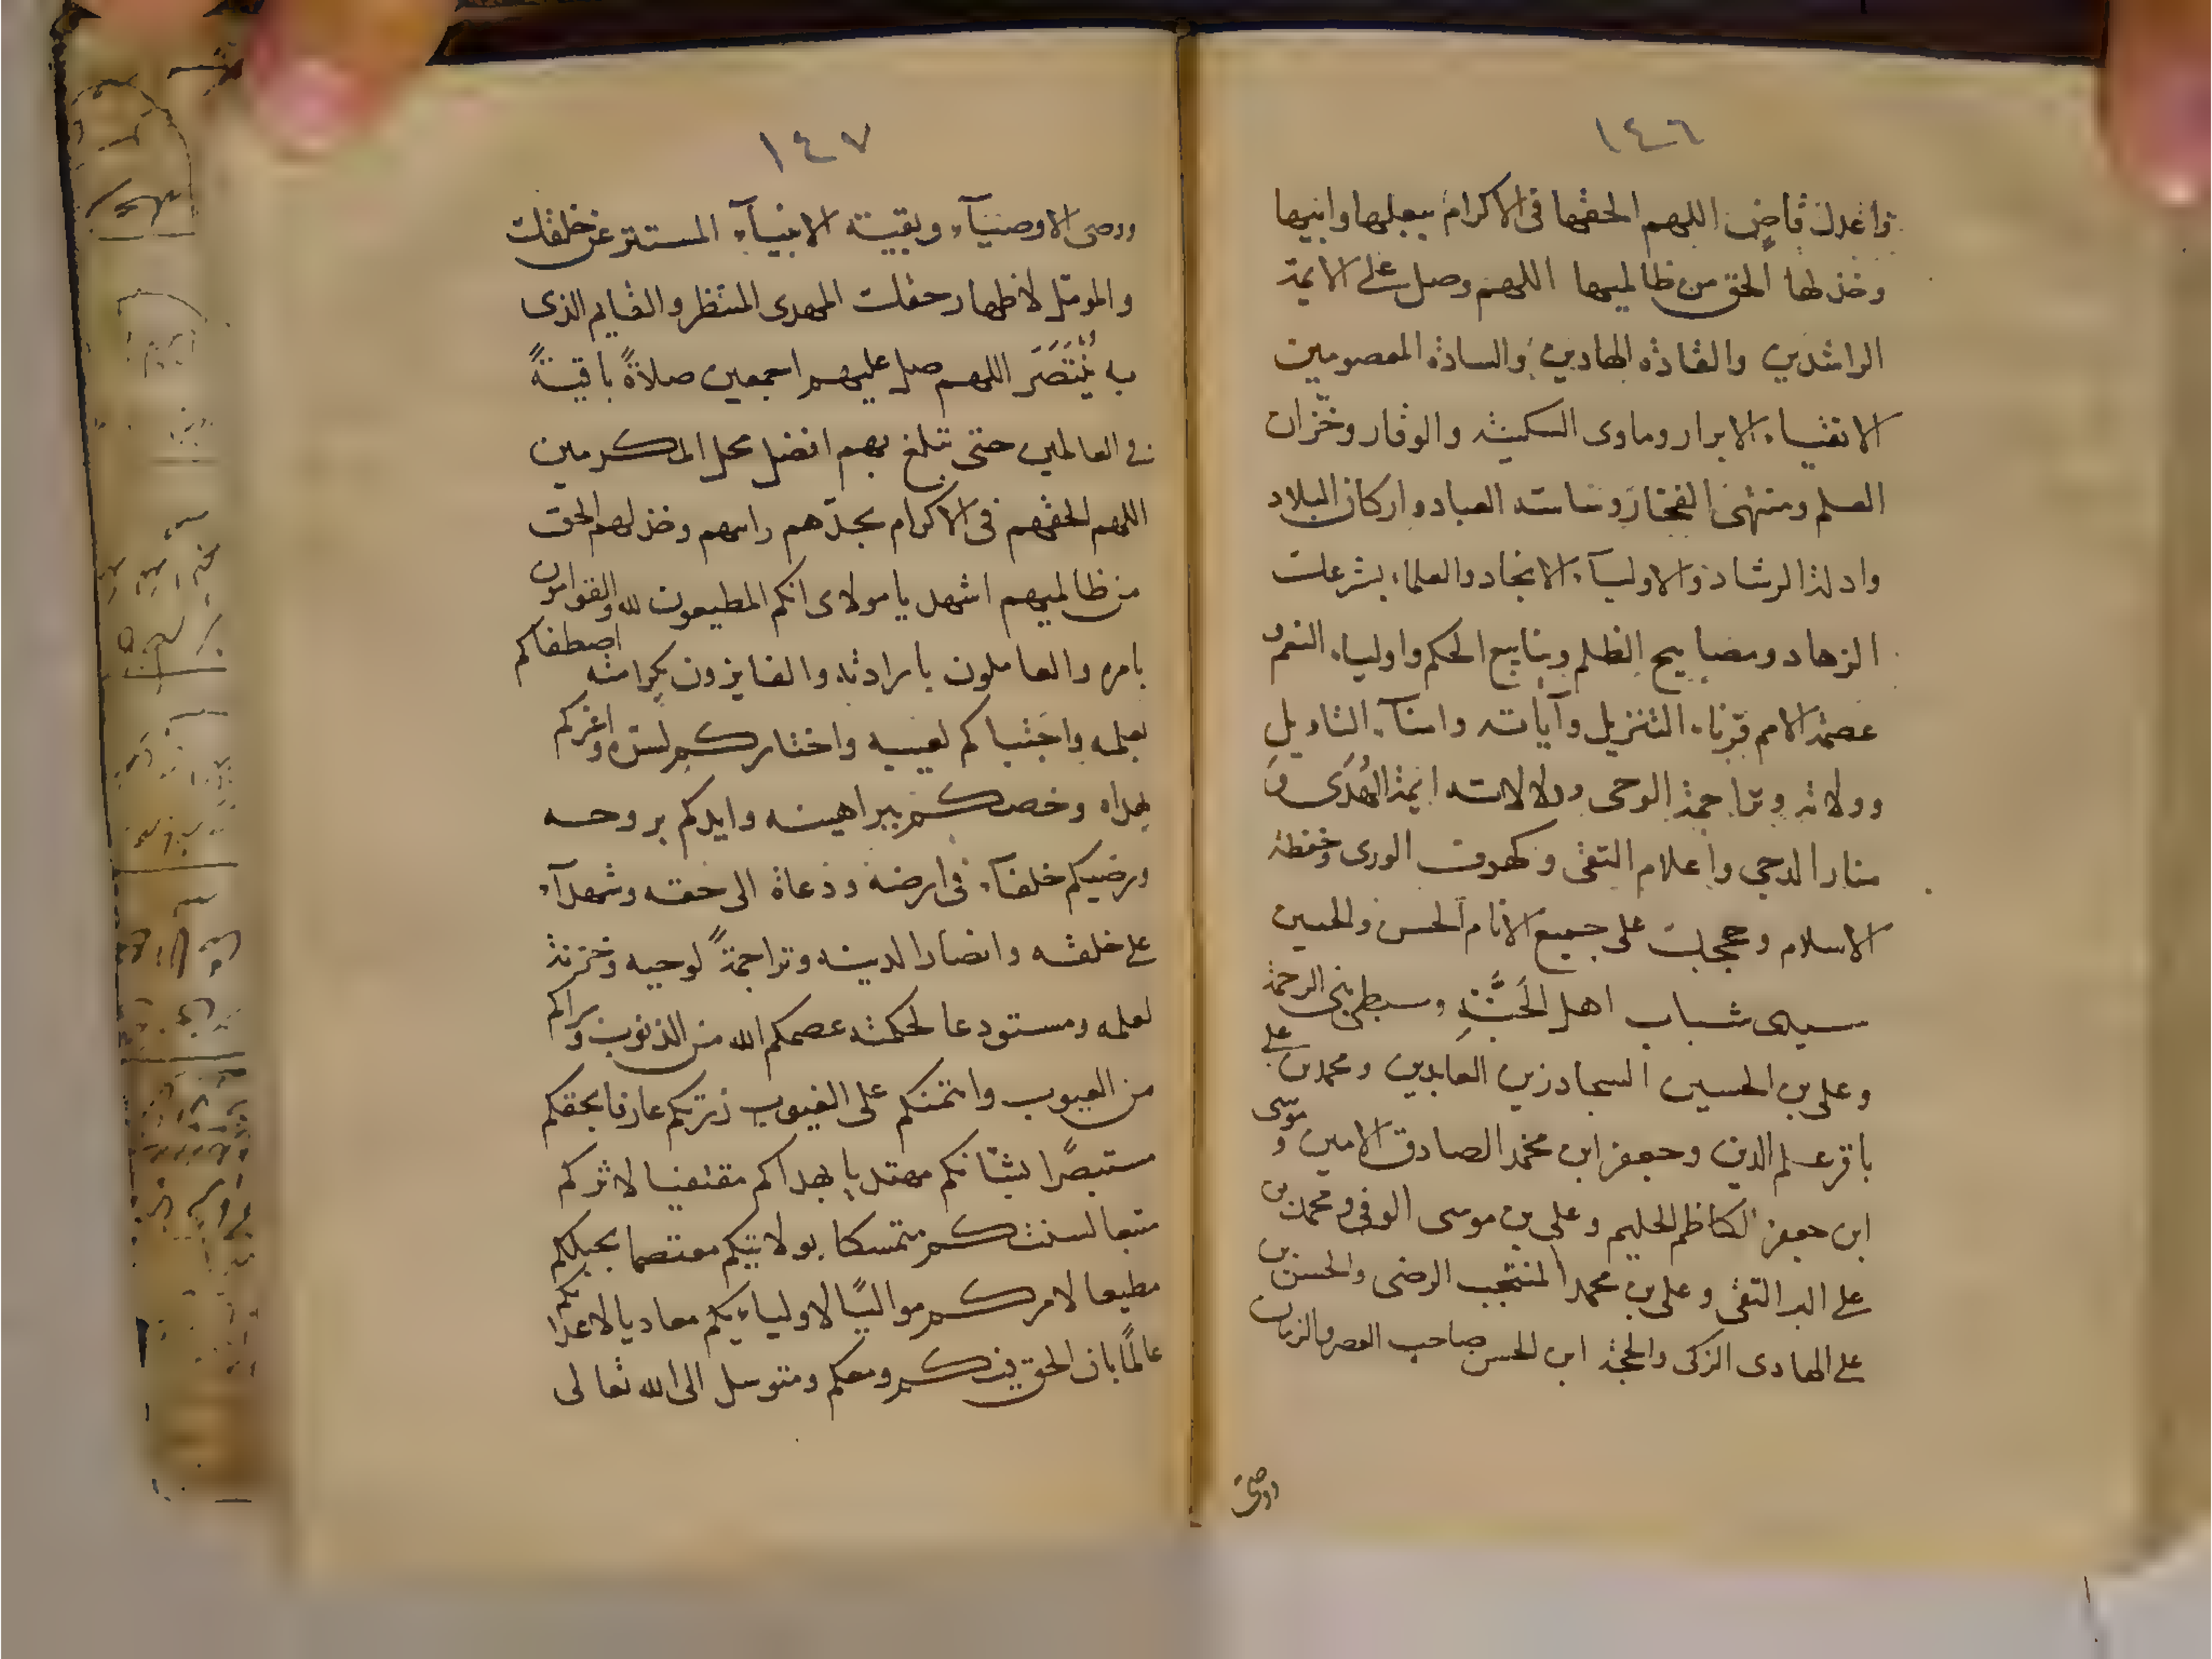 ١٤٦
واعدل قاض اللهم الحقها فى الاكرام ببعلها وابيها
وخذ لها الحق من ظالميها اللهم وصل على الايمة
الراشدين والقادة الهادين والسادة المعصومين
الاتقياء الابرار وماوى السكينة والوقار وخزان
العلم ومنتهى الفخار وساسة العباد واركان البلاد
وادلة الرشاد والاولياء الانجاد والعلماء بشرعك
الزهاد ومصابيح الظلم وينابيع الحكم واولياء النعم
عصمة الامم قرناء التنزيل وآياته وامناء التاويل
وولاته وتراجمة الوحى ودلالاته ايمة الهدى و
منار الدجى واعلام التقى وكهوف الورى وحفظة
الاسلام وحججك على جميع الانام الحسن والحسين
سيدى شباب اهل الجنة وسبطى نبى الرحمة
وعلى بن الحسين السجاد زين العابدين ومحمد بن على
باقر علم الدين وجعفر ابن محمد الصادق الامين وموسى
ابن جعفر الكاظم الحليم وعلى بن موسى الوفى ومحمد بن
على البر التقى وعلى بن محمد المنتجب الرضى والحسن بن
على الهادى الزكى والحجة ابن الحسن صاحب العصر والزمان
ووصى
١٤٧
ووصى الاوصياء وبقية الانبياء المستتر عن خلقك
والمومل لاظهار حقك المهدى المنتظر والقايم الذى
به يُنْتَصَرَ اللهم صل عليهم اجمعين صلاةً باقيةً
فى العالمين حتى تبلغ بهم افضل محل المكرمين
اللهم الحقهم فى الاكرام بجدهم وامهم وخذ لهم الحق
من ظالميهم اشهد يا مولاى انكم المطيعون لله والقوامون
بامره والعاملون بارادته والفايزون بكرامته اصطفاكم
لعلمه واجتباكم لغيبه واختاركم لسره واعزكم
بهداه وخصكم ببراهينه وايدكم بروحه
ورضيكم خلفاء فى ارضه ودعاة الى حقه وشهداء
على خلقه وانصارا لدينه وتراجمةً لوحيه وخزنة
لعلمه ومستودعا لحكمته عصمكم الله من الذنوب وبراكم
من العيوب وائتمنكم على الغيوب زرتكم عارفا بحقكم
مستبصرًا بشانكم مهتديا بهداكم مقتفيا لاثركم
متبعا لسنتكم متمسكا بولايتكم معتصما بحبلكم
مطيعا لامركم مواليًا لاوليائكم معاديا لاعدائكم
عالمًا بان الحق فيكم ومعكم ومتوسل الى الله تعالى